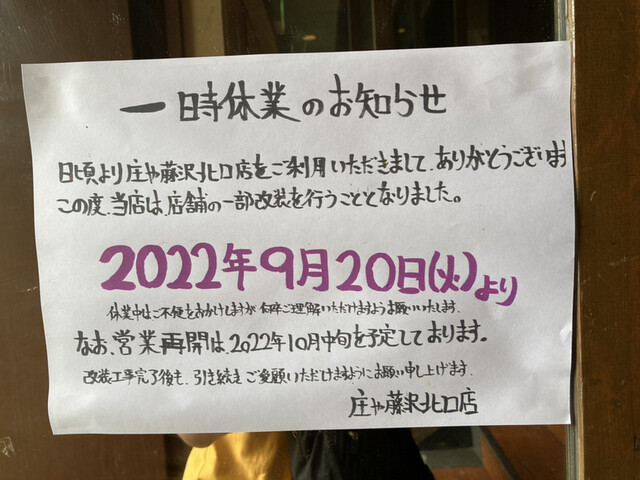 一時休業のお知らせ
日頃より庄や藤沢北口店をご利用いただきまして、ありがとうございます
この度、当店は、店舗の一部改装を行うこととなりました。
2022年9月20日(火)より
休業中はご不便をおかけしますが 何卒ご理解いただけますようお願いいたします.
なお、営業再開は、2022年10月中旬を予定しております。
改装工事完了後も、引き続きご愛顧いただけますようにお願い申し上げます.
庄や藤沢北口店